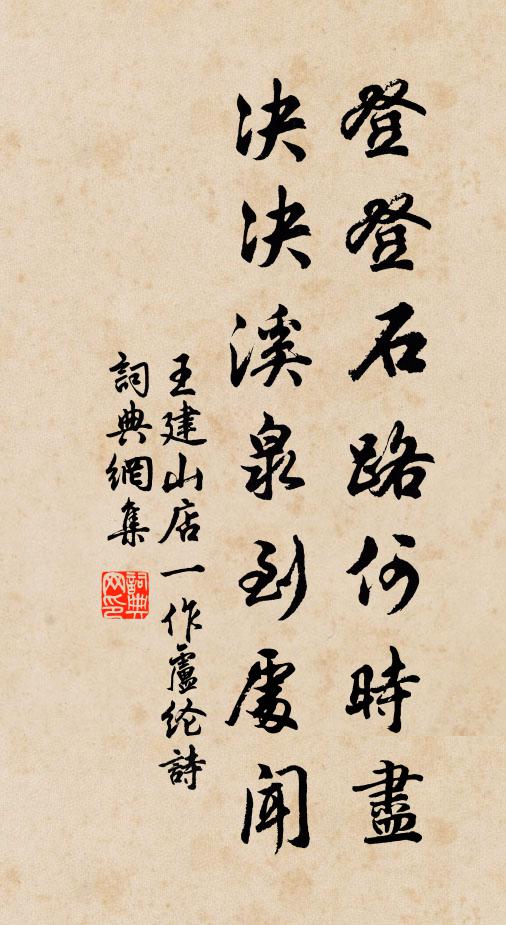 登登石路何時盡
决决溪泉到處聞
王建山店一作盧纶詩
詞典網集
詞典网印